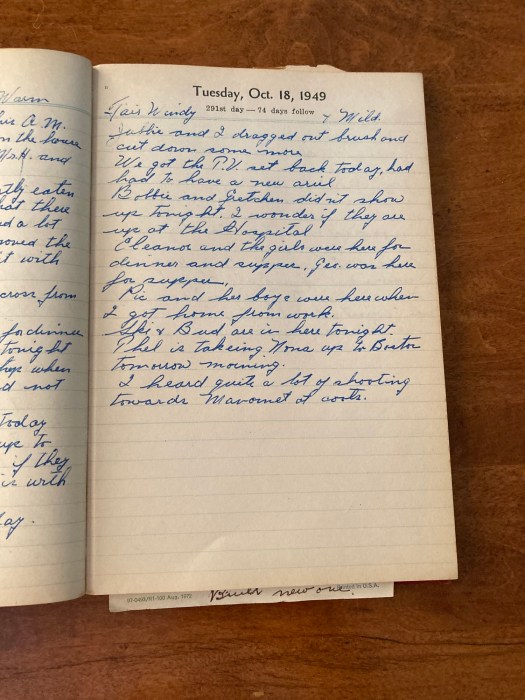 Warm
A.M.
in the house
and
eaten
that there
a lot
the
it with
across from
for dinner
tonight
when
not
today
up to
if they
is with
Tuesday, Oct. 18, 1949
291st day — 74 days follow
Fair Windy & Mild.
Jubbie and I dragged out brush and
cut down some more
We got the T.V. set back today, had
had to have a new ariel
Bobbie and Getchen didn't show
up tonight. I wonder if they are
up at the Hospital
Eleanor and the girls were here for
dinner and supper, Geo. was here
for supper,
Pic and her boys were here when
I got home from work.
& Bud are in here tonight
Phil is takeing Nona up to Boston
tomorrow morning.
I heard quite a lot of shooting
towards Manomet at coots.
Aug. 1975
new one.
Printed in U.S.A.